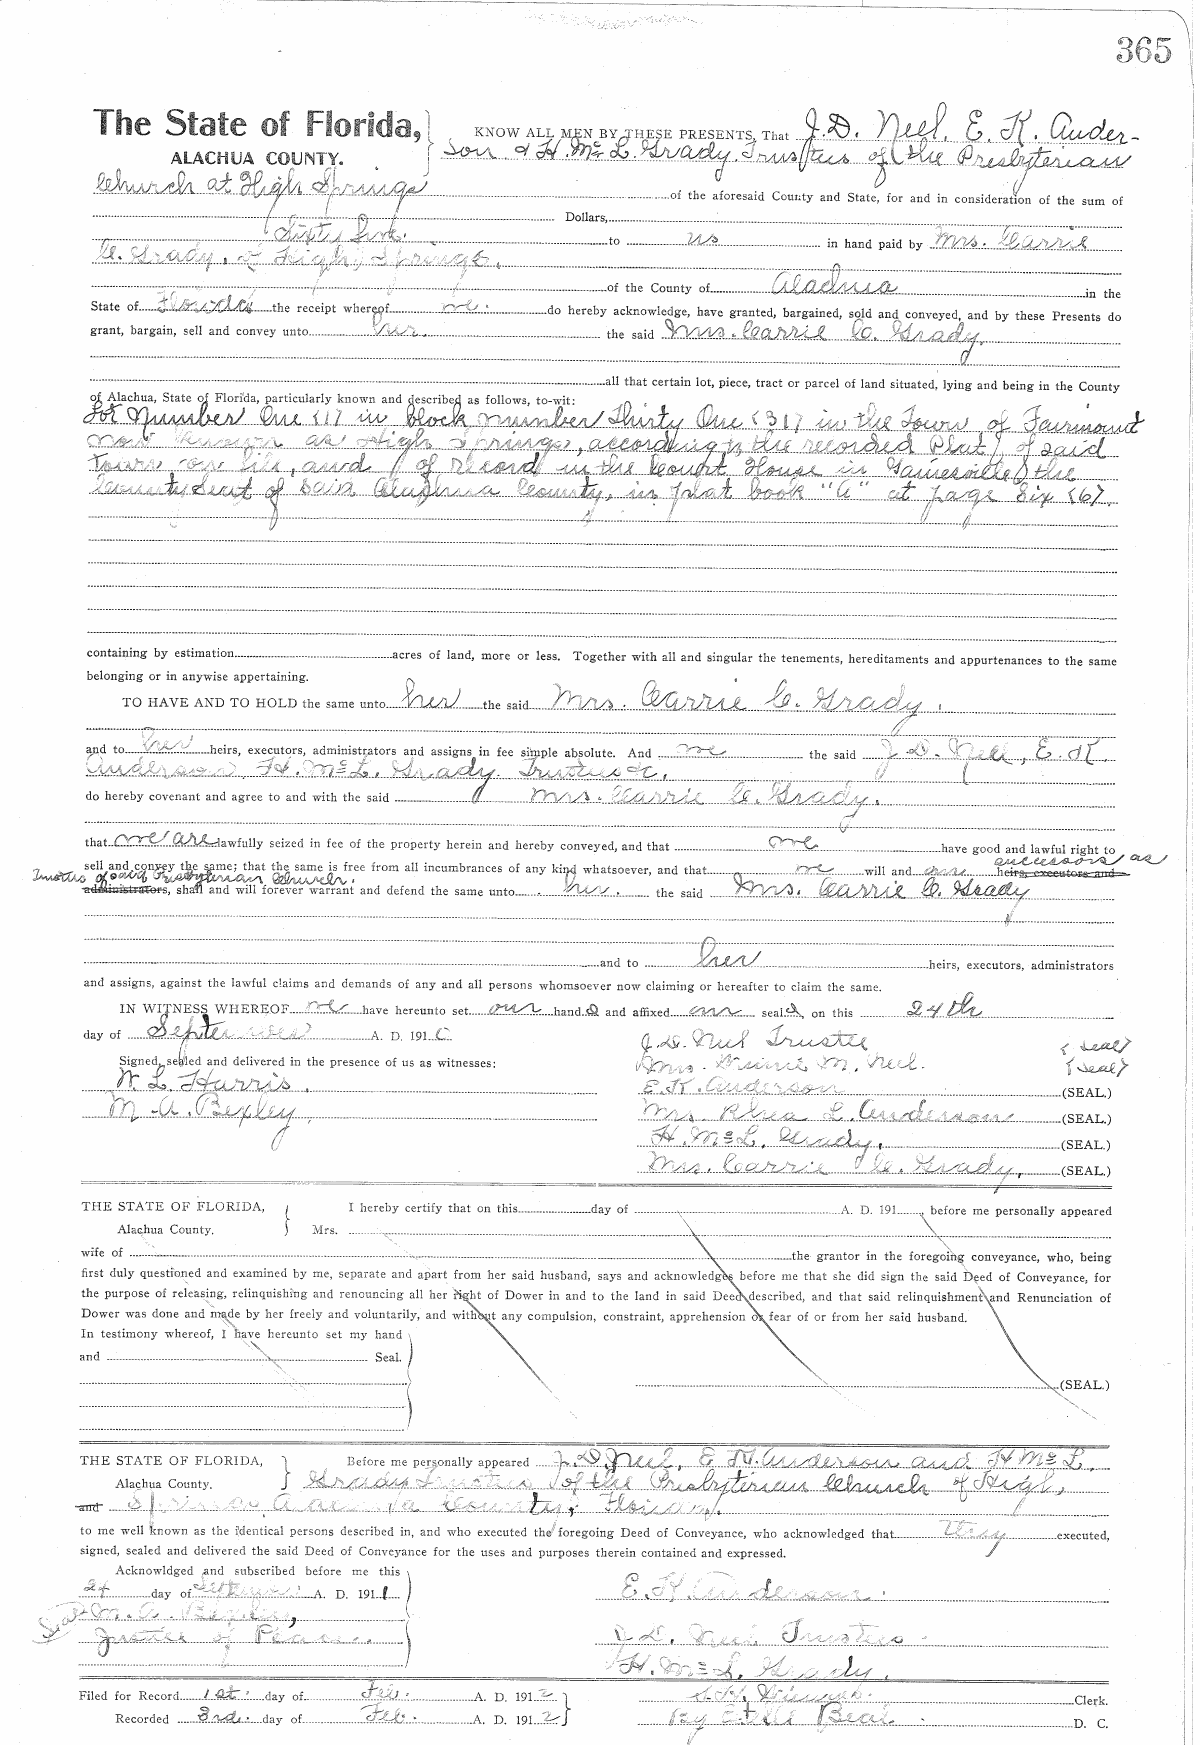 365
The State of Florida, KNOW ALL MEN BY THESE PRESENTS, That J.D. Neel, E. K. Ander-
ALACHUA COUNTY. son & H. Mc L. Grady Trustees of the Presbyterian
Church at High Springs of the aforesaid County and State, for and in consideration of the sum of
Dollars,
Sixty Five. to us in hand paid by Mrs. Carrie
C. Grady, of High Springs,
of the County of Alachua in the
State of Florida the receipt whereof we do hereby acknowledge, have granted, bargained, sold and conveyed, and by these Presents do
grant, bargain, sell and convey unto her the said Mrs. Carrie C. Grady.
all that certain lot, piece, tract or parcel of land situated, lying and being in the County
of Alachua, State of Florida, particularly known and described as follows, to-wit:
Lot Number One (1) in block number Thirty One (31) in the Town of Fairmount
now known as High Springs, according to the recorded Plat of said
Town on file, and of record in the Court House in Gainesville, the
County Seat of said Alachua County, in plat book "A" at page Six (6).
containing by estimation acres of land, more or less. Together with all and singular the tenements, hereditaments and appurtenances to the same
belonging or in anywise appertaining.
TO HAVE AND TO HOLD the same unto her the said Mrs. Carrie C. Grady.
and to her heirs, executors, administrators and assigns in fee simple absolute. And we the said J. D. Neel, E. K.
Anderson H. Mc L. Grady Trustees
do hereby covenant and agree to and with the said Mrs. Carrie C. Grady.
that we are lawfully seized in fee of the property herein and hereby conveyed, and that we have good and lawful right to
successors as
sell and convey the same; that the same is free from all incumbrances of any kind whatsoever, and that we will and our heirs, executors and
Trustees of said Presbyterian Church.
administrators, shall and will forever warrant and defend the same unto her the said Mrs. Carrie C. Grady
and to her heirs, executors, administrators
and assigns, against the lawful claims and demands of any and all persons whomsoever now claiming or hereafter to claim the same.
IN WITNESS WHEREOF we have hereunto set our hands and affixed our seals, on this 24th
day of September A. D. 191
J. D. Neel Trustee (seal)
Signed, sealed and delivered in the presence of us as witnesses: Mrs. M. Neel. (seal)
W. L. Harris. E. K. Anderson (SEAL.)
M. A. Bexley Mrs. Rhea L. Anderson (SEAL.)
H. Mc L. Grady, (SEAL.)
Mrs. Carrie C. Grady, (SEAL.)
THE STATE OF FLORIDA, I hereby certify that on this day of A. D. 191 , before me personally appeared
Alachua County. Mrs.
wife of the grantor in the foregoing conveyance, who, being
first duly questioned and examined by me, separate and apart from her said husband, says and acknowledges before me that she did sign the said Deed of Conveyance, for
the purpose of releasing, relinquishing and renouncing all her right of Dower in and to the land in said Deed described, and that said relinquishment and Renunciation of
Dower was done and made by her freely and voluntarily, and without any compulsion, constraint, apprehension or fear of or from her said husband.
In testimony whereof, I have hereunto set my hand
and Seal.
(SEAL.)
THE STATE OF FLORIDA, Before me personally appeared J. D. Neel, E. K. Anderson and H Mc L.
Alachua County. Grady Trustees of the Presbyterian Church of High
and Springs Alachua County, Florida.
to me well known as the identical persons described in, and who executed the foregoing Deed of Conveyance, who acknowledged that they executed,
signed, sealed and delivered the said Deed of Conveyance for the uses and purposes therein contained and expressed.
Acknowldged and subscribed before me this
24 day of September A. D. 1911 E. K. Anderson.
Seal M. A. Bexley,
Justice of Peace. J. D. Neel Trustees
H. Mc L. Grady.
Filed for Record 1st. day of Feb. A. D. 1912 Clerk.
Recorded 3rd. day of Feb. A. D. 1912 By Beal D. C.